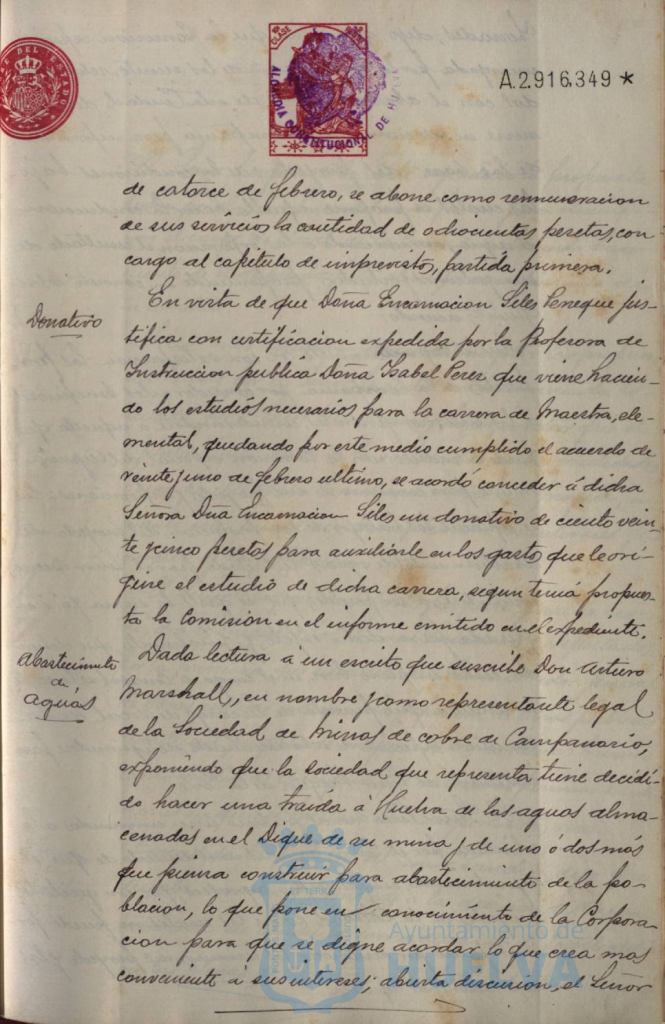 CLASE
A.2.916.349 *
ALCALDIA CONSTITUCIONAL DE HUELVA
de catorce de febrero, se abone como remuneracion
de sus servicios la cantidad de ochocientas pesetas, con
cargo al capitulo de imprevistos, partida primera.
Donativo
En vista de que Doña Encarnacion Siles Peneque jus-
tifica con certificacion expedida por la Profesora de
Instruccion publica Doña Isabel Perez que viene hacien-
do los estudios necesarios para la carrera de Maestra, ele-
mental, quedando por este medio cumplido el acuerdo de
veinte y uno de febrero ultimo, se acordó conceder á dicha
Señora Dña Encarnacion Siles un donativo de ciento vein-
te y cinco pesetas para auxiliarle en los gastos que le ori-
gine el estudio de dicha carrera, segun tenia propues-
ta la Comision en el informe emitido en el expediente.
Abastecimiento
de
aguas
Dada lectura á un escrito que suscribe Don Arturo
Marshall, en nombre y como representante legal
de la Sociedad de Minas de cobre de Campanario,
exponiendo que la sociedad que representa tiene decidi-
do hacer una traida á Huelva de las aguas alma-
cenadas en el Dique de su mina y de uno ó dos más
que piensa construir para abastecimiento de la po-
blacion, lo que pone en conocimiento de la Corpora-
cion para que se digne acordar lo que crea mas
conveniente á sus intereses; abierta discusion, el Señor
Ayuntamiento de
HUELVA